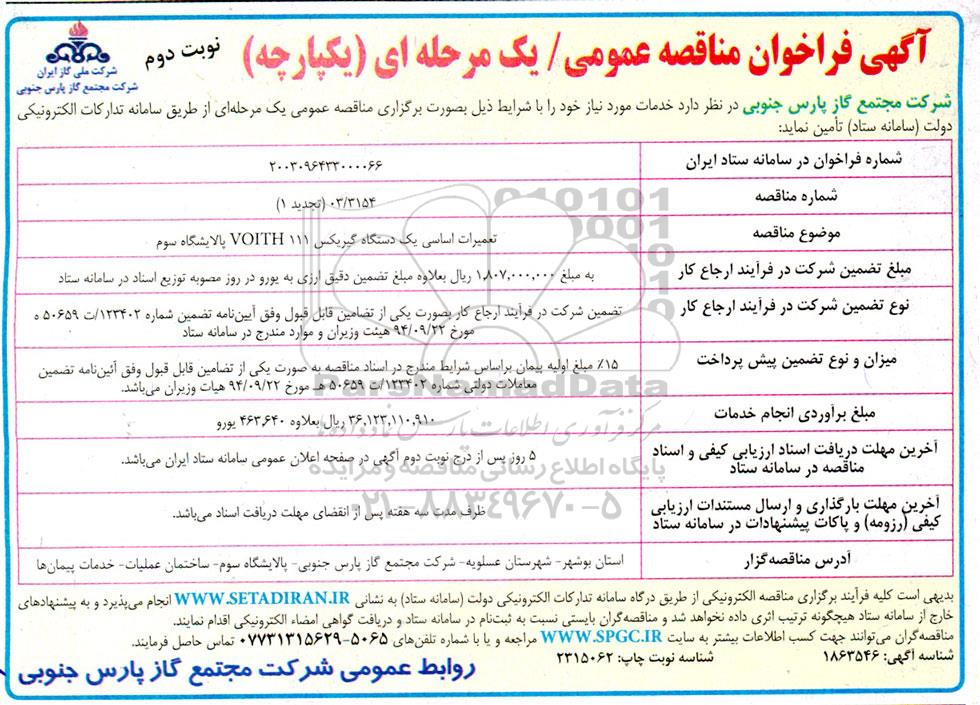 آگهی فراخوان مناقصه عمومی/ یک مرحله ای (یکپارچه)
نوبت دوم
شرکت ملی گاز ایران
شرکت مجتمع گاز پارس جنوبی
شرکت مجتمع گاز پارس جنوبی در نظر دارد خدمات مورد نیاز خود را با شرایط ذیل بصورت برگزاری مناقصه عمومی یک مرحله‌ای از طریق سامانه تدارکات الکترونیکی
دولت (سامانه ستاد) تأمین نماید:
شماره فراخوان در سامانه ستاد ایران
۲۰۰۳۰۹۶۴۳۳۰۰۰۰۶۶
شماره مناقصه
۰۳/۳۱۵۴ (تجدید ۱)
موضوع مناقصه
تعمیرات اساسی یک دستگاه گیربکس VOITH ۱۱۱ پالایشگاه سوم
مبلغ تضمین شرکت در فرآیند ارجاع کار
به مبلغ ۱,۸۰۷,۰۰۰,۰۰۰ ریال بعلاوه مبلغ تضمین دقیق ارزی به یورو در روز مصوبه توزیع اسناد در سامانه ستاد
نوع تضمین شرکت در فرآیند ارجاع کار
تضمین شرکت در فرآیند ارجاع کار بصورت یکی از تضامین قابل قبول وفق آیین‌نامه تضمین شماره ۱۲۳۴۰۲/ت ۵۰۶۵۹ ه
مورخ ۹۴/۰۹/۲۲ هیئت وزیران و موارد مندرج در سامانه ستاد
میزان و نوع تضمین پیش پرداخت
۱۵٪ مبلغ اولیه پیمان براساس شرایط مندرج در اسناد مناقصه به صورت یکی از تضامین قابل قبول وفق آئین‌نامه تضمین
معاملات دولتی شماره ۱۲۳۴۰۲/ت ۵۰۶۵۹ هـ مورخ ۹۴/۰۹/۲۲ هیات وزیران می‌باشد.
ParsNamadData
مبلغ برآوردی انجام خدمات
۳۶,۱۲۳,۱۱۰,۹۱۰ ریال بعلاوه ۴۶۳,۶۴۰ یورو
مرکز فرآوری اطلاعات پارس نماد داده‌ها
آخرین مهلت دریافت اسناد ارزیابی کیفی و اسناد
مناقصه در سامانه ستاد
۵ روز پس از درج نوبت دوم آگهی در صفحه اعلان عمومی سامانه ستاد ایران می‌باشد.
پایگاه اطلاع رسانی مناقصه و مزایده
آخرین مهلت بارگذاری و ارسال مستندات ارزیابی
کیفی (رزومه) و پاکات پیشنهادات در سامانه ستاد
ظرف مدت سه هفته پس از انقضای مهلت دریافت اسناد می‌باشد.
۰۲۱-۸۸۳۴۹۶۷۰-۵
آدرس مناقصه‌گزار
استان بوشهر- شهرستان عسلویه- شرکت مجتمع گاز پارس جنوبی- پالایشگاه سوم- ساختمان عملیات- خدمات پیمان‌ها
بدیهی است کلیه فرآیند برگزاری مناقصه الکترونیکی از طریق درگاه سامانه تدارکات الکترونیکی دولت (سامانه ستاد) به نشانی WWW.SETADIRAN.IR انجام می‌پذیرد و به پیشنهادهای
خارج از سامانه ستاد هیچگونه ترتیب اثری داده نخواهد شد و مناقصه‌گران بایستی نسبت به ثبت‌نام در سامانه ستاد و دریافت گواهی امضاء الکترونیکی اقدام نمایند.
مناقصه‌گران می‌توانند جهت کسب اطلاعات بیشتر به سایت WWW.SPGC.IR مراجعه و یا با شماره تلفن‌های ۵۰۶۵-۰۷۷۳۱۳۱۵۶۲۹ تماس حاصل فرمایند.
شناسه آگهی: ۱۸۶۳۵۴۶
شناسه نوبت چاپ: ۲۳۱۵۰۶۲
روابط عمومی شرکت مجتمع گاز پارس جنوبی